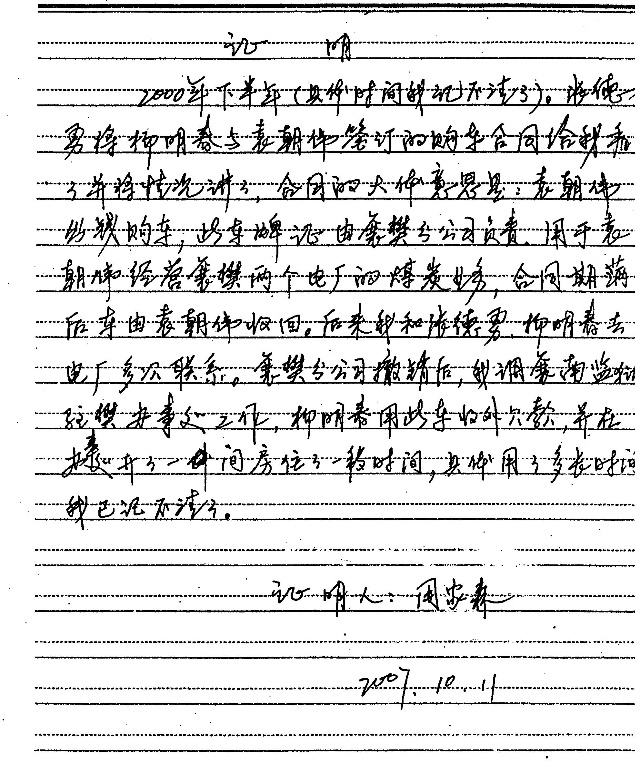 证 明
2000年下半年(具体时间我记不清了)。张德
勇将柳明春与袁朝伟签订的购车合同给我看
了并将情况讲了,合同的大体意思是:袁朝伟
出钱购车,此车牌证由襄樊分公司负责.用于袁
朝伟经营襄樊两个电厂的煤炭业务,合同期满
后车由袁朝伟收回。后来我和张德勇.柳明春去
电厂多次联系。襄樊分公司撤销后,我调襄南监狱
驻樊办事处工作,柳明春用此车收外欠款,并在
开了一间房住了一段时间,具体用了多长时间
我已记不清了。
证明人:周家森
2007.10.11